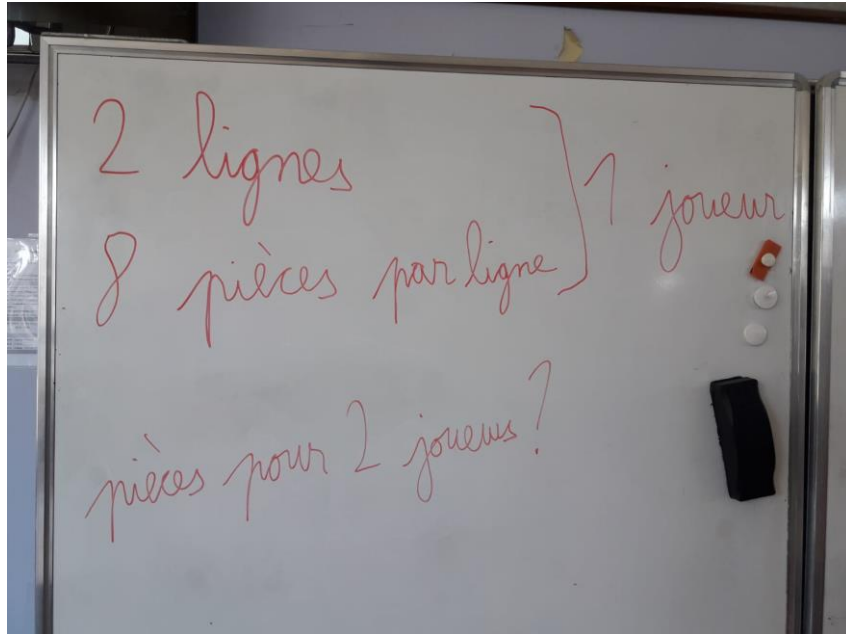 2 lignes
8 pièces par ligne
1 joueur
pièces pour 2 joueurs ?